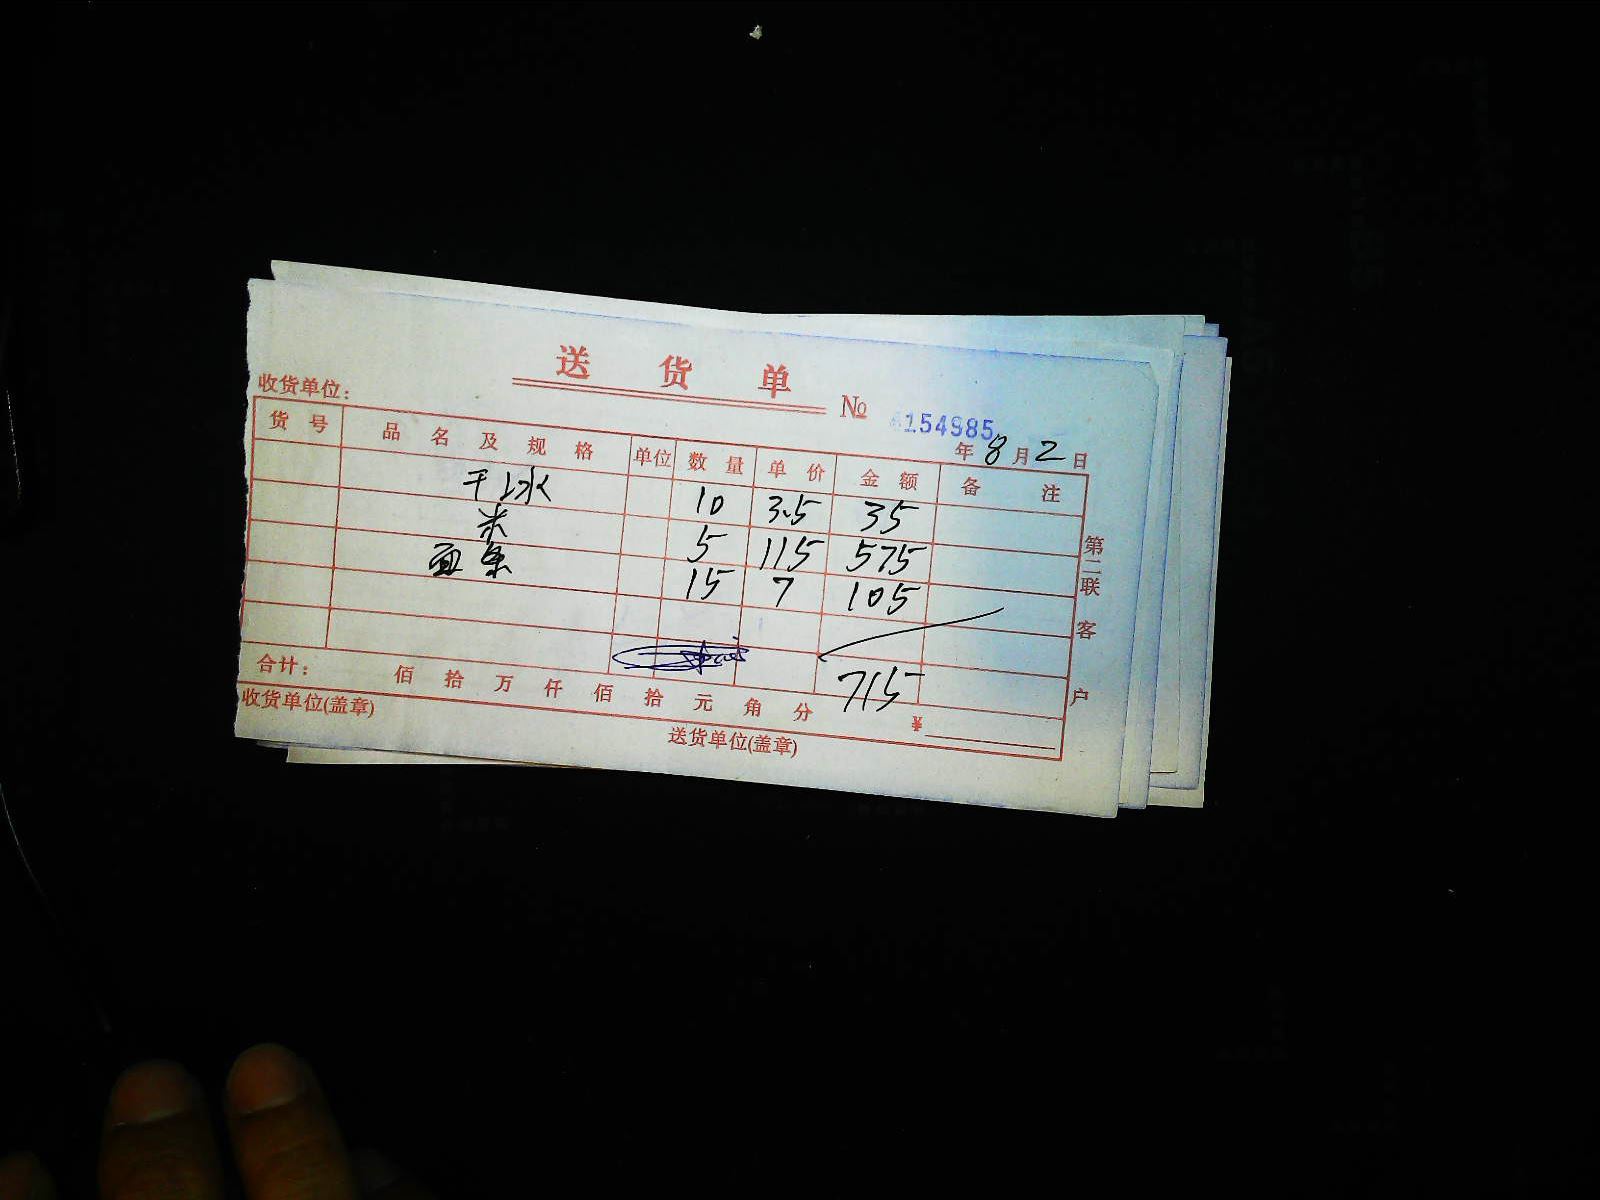 送 货 单
收货单位： № 6154985
年 8 月 2 日
货 号 品 名 及 规 格 单位 数 量 单 价 金 额 备 注
干 水 10 3.5 35
米 5 115 575
面条 15 7 105
715
合计： 佰 拾 万 仟 佰 拾 元 角 分 ¥
收货单位(盖章) 送货单位(盖章)
第二联 客 户